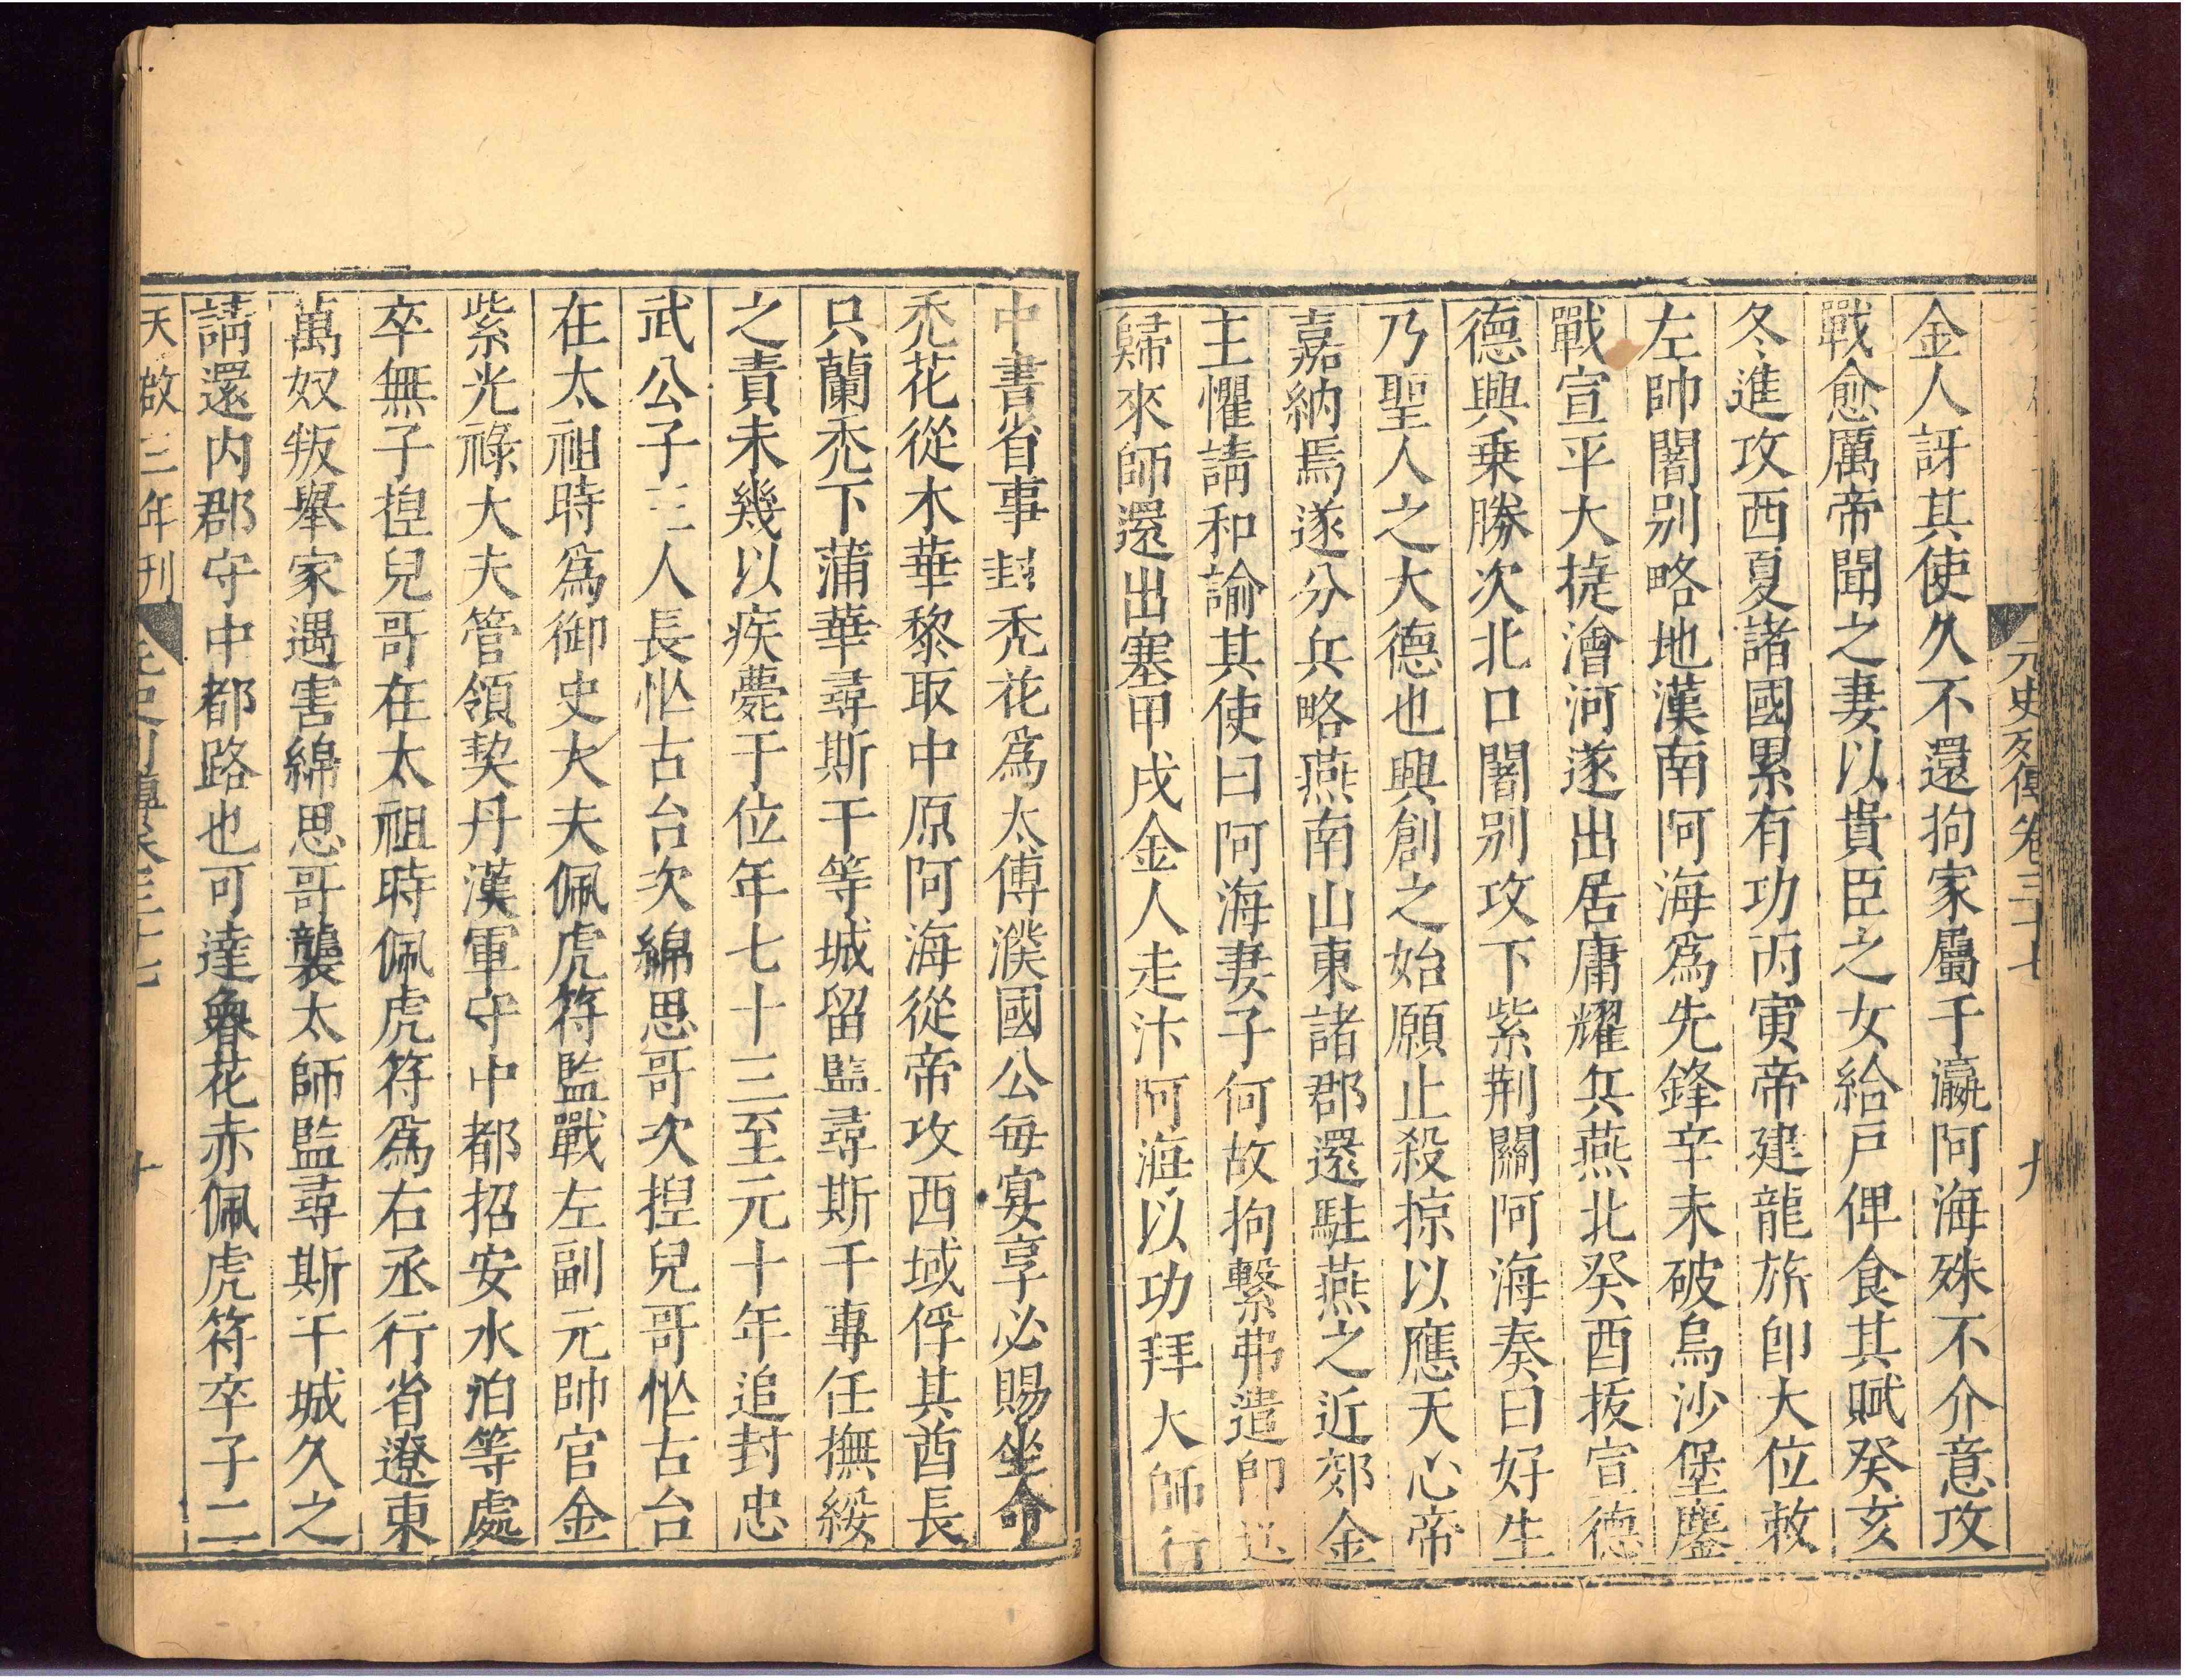 元史列傳卷三十七
九
金人訝其使久不還拘家屬于瀛阿海殊不介意攻
戰愈厲帝聞之妻以貴臣之女給戶俾食其賦癸亥
冬進攻西夏諸國累有功丙寅帝建龍旂卽大位敕
左帥闍别略地漢南阿海爲先鋒辛未破烏沙堡鏖
戰宣平大捷澮河遂出居庸耀兵燕北癸酉拔宣德
德興乗勝次北口闍别攻下紫荆關阿海奏曰好生
乃聖人之大德也興創之始願止殺掠以應天心帝
嘉納焉遂分兵略燕南山東諸郡還駐燕之近郊金
主懼請和諭其使曰阿海妻子何故拘繫弗遣卽送
歸來師還出塞甲戌金人走汴阿海以功拜大師行
中書省事封禿花爲太傅濮國公每宴享必賜坐命
禿花從木華黎取中原阿海從帝攻西域俘其酋長
只蘭禿下蒲華尋斯干等城留監尋斯干專任撫綏
之責未幾以疾薨于位年七十三至元十年追封忠
武公子三人長忙古台次綿思哥次揑兒哥忙古台
在太祖時爲御史大夫佩虎符監戰左副元帥官金
紫光祿大夫管領契丹漢軍守中都招安水泊等處
卒無子揑兒哥在太祖時佩虎符爲右丞行省遼東
萬奴叛舉家遇害綿思哥襲太師監尋斯干城久之
請還内郡守中都路也可達魯花赤佩虎符卒子二
天啟三年刊
元史列傳卷三十七
十